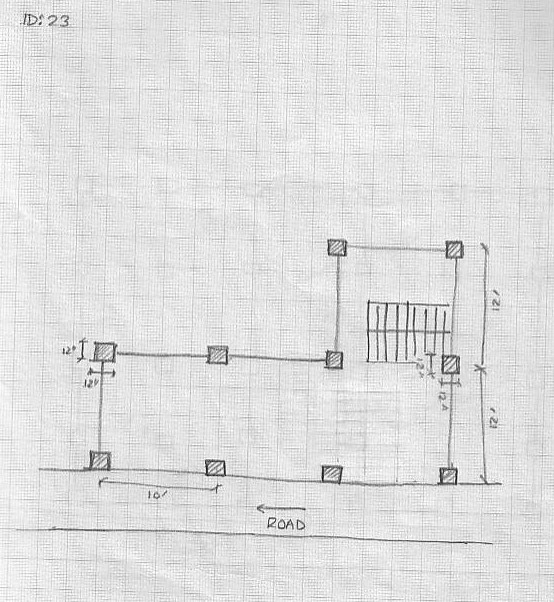 ID: 23
12'
12"
12"
12"
12"
12'
10'
ROAD